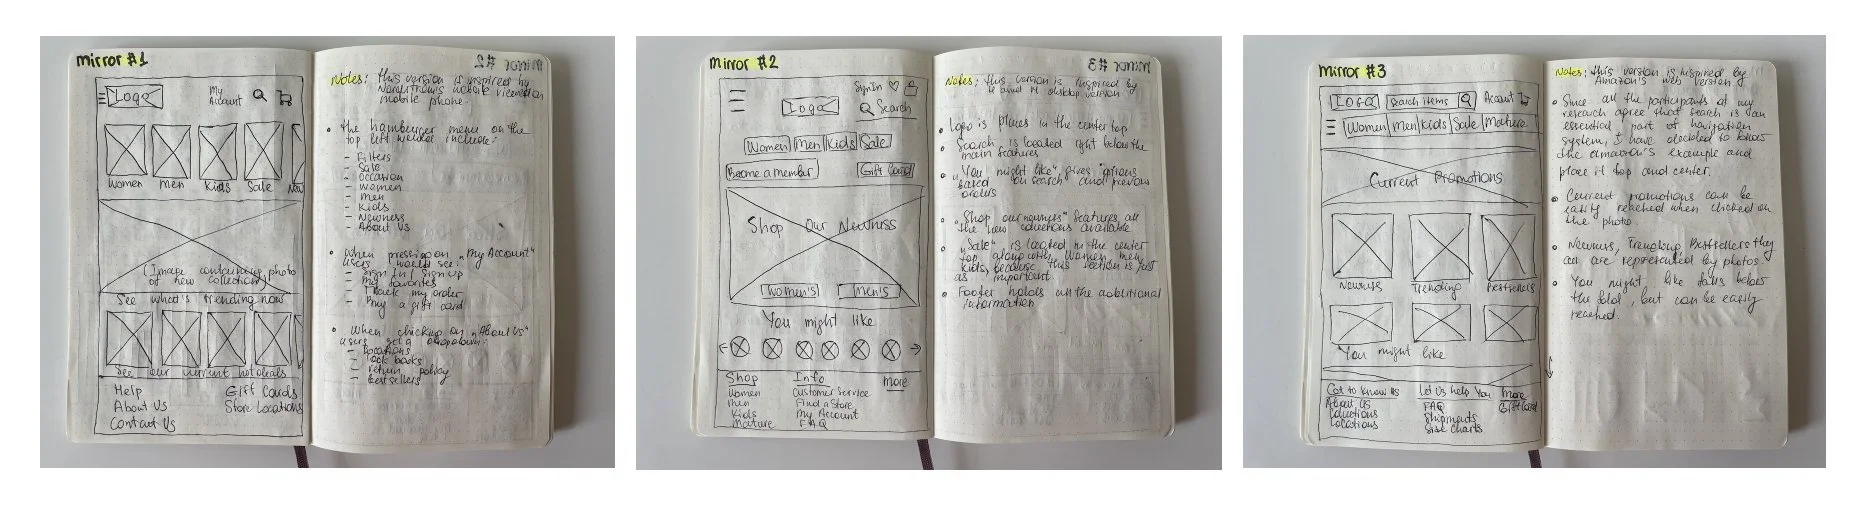 mirror #1
Logo
My
Account
Women Men Kids Sale
(Image containing photo
of new collection)
See what's trending now
See our current hot deals
Help Gift Cards
About Us Store Locations
Contact Us
Notes: this version is inspired by
website version on
mobile phone.
• the hamburger menu on the
top left would include:
- Filters
- Sale
- Occation
- Women
- Men
- Kids
- Newness
- About Us
• When pressing on "My Account"
users would see:
- Sign In / Sign up
- My favorites
- Track my order
- Buy a gift card
• When clicking on "About Us"
users get a dropdown:
- Locations
- Look books
- return policy
- bestsellers
mirror #2
Sign In
Logo
Search
Women Men Kids Sale
Become a member Gift Card
Shop Our Newness
Women's Men's
You might like
Shop Info More
Women Customer Service
Men Find a Store
Kids My Account
Mature FAQ
Notes: this version is inspired by
H and M desktop version.
• Logo is places in the center top
• Search is located right below the
main features
• "You might like" gives options
based on search and previous
orders
• "Shop our newness" features all
the new collections available
• "Sale" is located in the center
top along with Women, men,
kids, because this section is just
as important
• Footer holds all the additional
information
mirror #3
LOGO Search items Account
Women Men Kids Sale Mature
Current Promotions
Newness Trending Bestsellers
You might like
Get to know Us Let Us help You More
About Us FAQ Gift Card
Collections Shipments
Locations Size Charts
Notes: this version is inspired by
Amazon's web version
• Since all the participants of my
research agree that search is an
essential part of navigation
system, I have decided to follow
the amazon's example and
place it top and center.
• Current promotions can be
easily reached when clicked on
the photo.
• Newness, Trending, Bestsellers they
all are represented by photos.
• You might like falls below
the fold, but can be easily
reached.